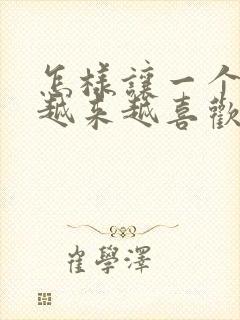 怎樣讓一个
越来越喜歡
崔學澤